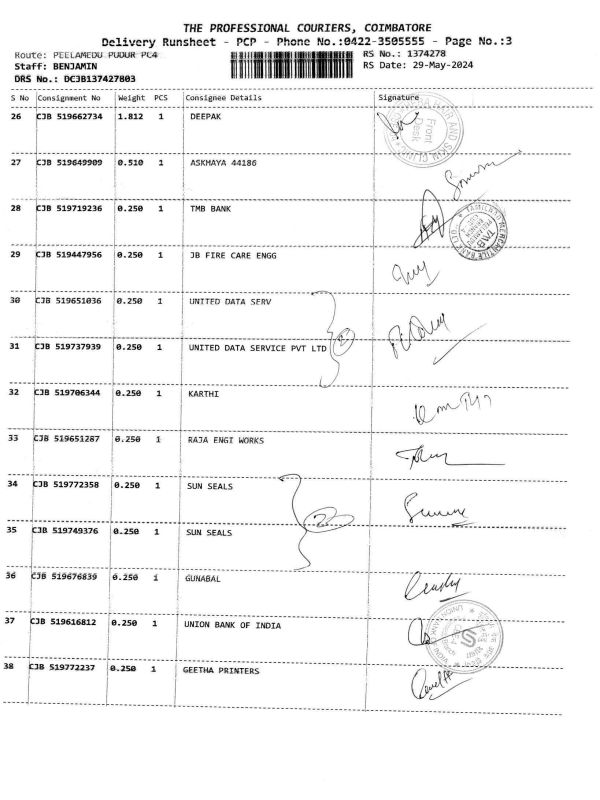 THE PROFESSIONAL COURIERS, COIMBATORE
Delivery Runsheet - PCP - Phone No.:0422-3505555 - Page No.:3
Route: PEELAMEDU PUDUR PC4 RS No.: 1374278
Staff: BENJAMIN RS Date: 29-May-2024
DRS No.: DCJB137427803
S No Consignment No Weight PCS Consignee Details Signature
26 CJB 519662734 1.812 1 DEEPAK
Front Desk
27 CJB 519649909 0.510 1 ASKHAYA 44186
28 CJB 519719236 0.250 1 TMB BANK
TAMILNAD MERCANTILE BANK LTD
TMB
29 CJB 519447956 0.250 1 JB FIRE CARE ENGG
30 CJB 519651036 0.250 1 UNITED DATA SERV
2
31 CJB 519737939 0.250 1 UNITED DATA SERVICE PVT LTD
32 CJB 519706344 0.250 1 KARTHI
33 CJB 519651287 0.250 1 RAJA ENGI WORKS
34 CJB 519772358 0.250 1 SUN SEALS
2
35 CJB 519749376 0.250 1 SUN SEALS
36 CJB 519676839 0.250 1 GUNABAL
37 CJB 519616812 0.250 1 UNION BANK OF INDIA
38 CJB 519772237 0.250 1 GEETHA PRINTERS